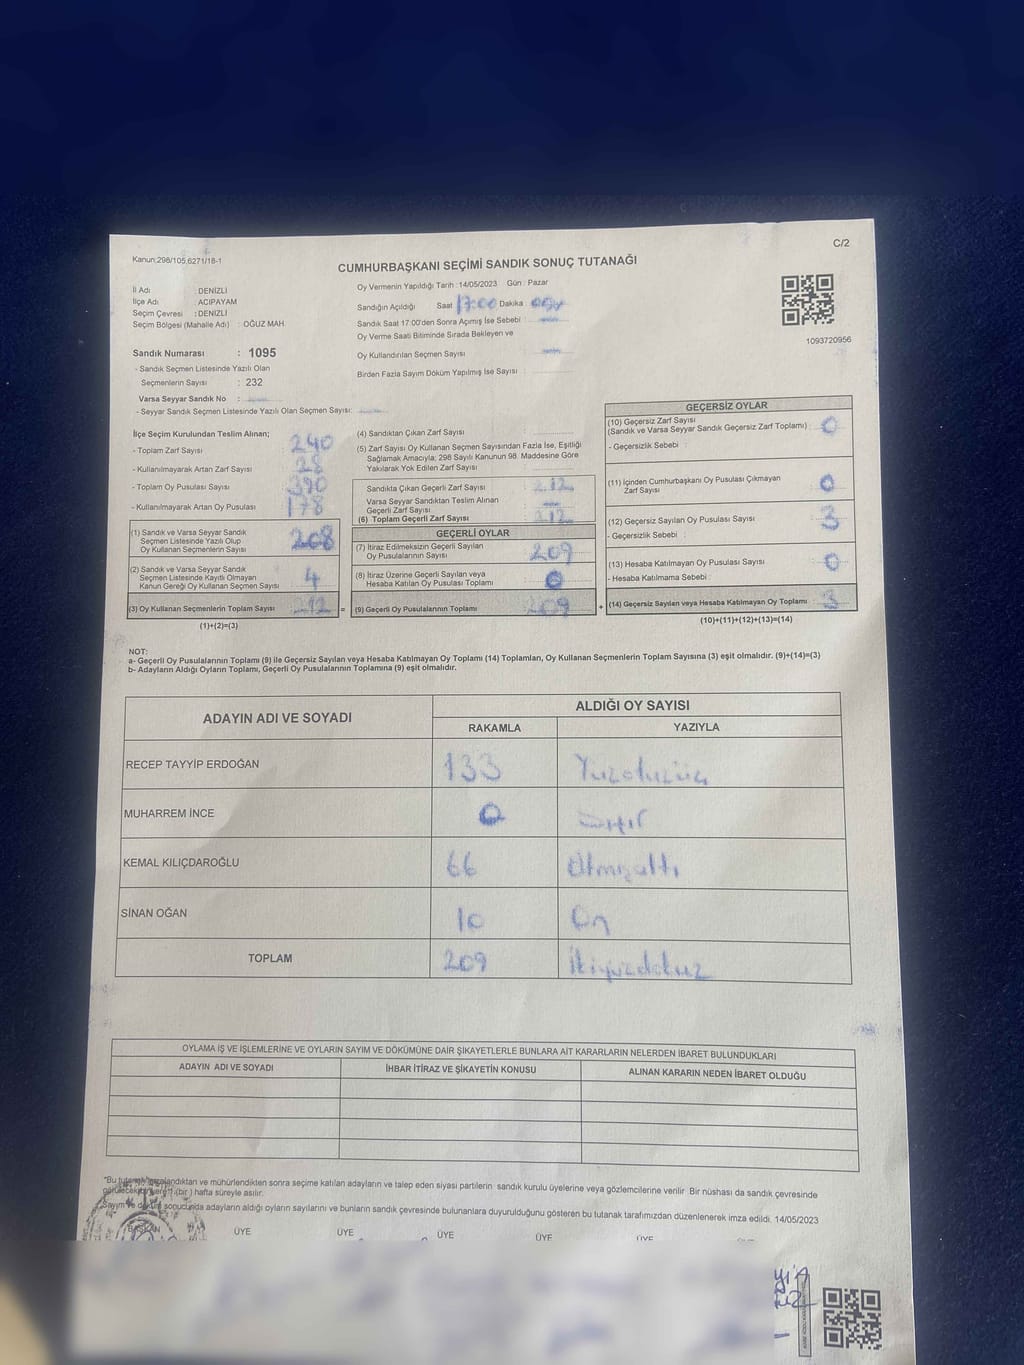 Kanun;298/105,6271/18-1
C/2
CUMHURBAŞKANI SEÇİMİ SANDIK SONUÇ TUTANAĞI
İl Adı : DENİZLİ
İlçe Adı : ACIPAYAM
Seçim Çevresi : DENİZLİ
Seçim Bölgesi (Mahalle Adı) : OĞUZ MAH
Sandık Numarası : 1095
- Sandık Seçmen Listesinde Yazılı Olan
Seçmenlerin Sayısı : 232
Varsa Seyyar Sandık No :
- Seyyar Sandık Seçmen Listesinde Yazılı Olan Seçmen Sayısı:
Oy Vermenin Yapıldığı Tarih : 14/05/2023 Gün : Pazar
Sandığın Açıldığı Saat 17:00 Dakika
Sandık Saat 17:00'den Sonra Açımış İse Sebebi :
Oy Verme Saati Bitiminde Sırada Bekleyen ve
Oy Kullandırılan Seçmen Sayısı :
Birden Fazla Sayım Döküm Yapılmış İse Sayısı :
1093720956
İlçe Seçim Kurulundan Teslim Alınan;
- Toplam Zarf Sayısı 240
- Kullanılmayarak Artan Zarf Sayısı 28
- Toplam Oy Pusulası Sayısı 390
- Kullanılmayarak Artan Oy Pusulası 178
(1) Sandık ve Varsa Seyyar Sandık
Seçmen Listesinde Yazılı Olup
Oy Kullanan Seçmenlerin Sayısı 208
(2) Sandık ve Varsa Seyyar Sandık
Seçmen Listesinde Kayıtlı Olmayan
Kanun Gereği Oy Kullanan Seçmen Sayısı 4
(3) Oy Kullanan Seçmenlerin Toplam Sayısı 212 =
(1)+(2)=(3)
(4) Sandıktan Çıkan Zarf Sayısı
(5) Zarf Sayısı Oy Kullanan Seçmen Sayısından Fazla İse, Eşitliği
Sağlamak Amacıyla; 298 Sayılı Kanunun 98. Maddesine Göre
Yakılarak Yok Edilen Zarf Sayısı
Sandıkta Çıkan Geçerli Zarf Sayısı 212
Varsa Seyyar Sandıktan Teslim Alınan
Geçerli Zarf Sayısı
(6) Toplam Geçerli Zarf Sayısı 212
GEÇERLİ OYLAR
(7) İtiraz Edilmeksizin Geçerli Sayılan
Oy Pusulalarının Sayısı 209
(8) İtiraz Üzerine Geçerli Sayılan veya
Hesaba Katılan Oy Pusulası Toplamı 0
(9) Geçerli Oy Pusulalarının Toplamı 209 +
GEÇERSİZ OYLAR
(10) Geçersiz Zarf Sayısı
(Sandık ve Varsa Seyyar Sandık Geçersiz Zarf Toplamı) 0
- Geçersizlik Sebebi :
(11) İçinden Cumhurbaşkanı Oy Pusulası Çıkmayan
Zarf Sayısı 0
(12) Geçersiz Sayılan Oy Pusulası Sayısı 3
- Geçersizlik Sebebi :
(13) Hesaba Katılmayan Oy Pusulası Sayısı 0
- Hesaba Katılmama Sebebi :
(14) Geçersiz Sayılan veya Hesaba Katılmayan Oy Toplamı 3
(10)+(11)+(12)+(13)=(14)
NOT:
a- Geçerli Oy Pusulalarının Toplamı (9) ile Geçersiz Sayılan veya Hesaba Katılmayan Oy Toplamı (14) Toplamları, Oy Kullanan Seçmenlerin Toplam Sayısına (3) eşit olmalıdır. (9)+(14)=(3)
b- Adayların Aldığı Oyların Toplamı, Geçerli Oy Pusulalarının Toplamına (9) eşit olmalıdır.
ADAYIN ADI VE SOYADI
ALDIĞI OY SAYISI
RAKAMLA YAZIYLA
RECEP TAYYİP ERDOĞAN 133 Yüzotuzüç
MUHARREM İNCE 0 Sıfır
KEMAL KILIÇDAROĞLU 66 Altmışaltı
SİNAN OĞAN 10 On
TOPLAM 209 İkiyüzdokuz
OYLAMA İŞ VE İŞLEMLERİNE VE OYLARIN SAYIM VE DÖKÜMÜNE DAİR ŞİKAYETLERLE BUNLARA AİT KARARLARIN NELERDEN İBARET BULUNDUKLARI
ADAYIN ADI VE SOYADI İHBAR İTİRAZ VE ŞİKAYETİN KONUSU ALINAN KARARIN NEDEN İBARET OLDUĞU
"Bu landıktan ve mühürlendikten sonra seçime katılan adayların ve talep eden siyasi partilerin sandık kurulu üyelerine veya gözlemcilerine verilir. Bir nüshası da sandık çevresinde
(bir) hafta süreyle asılır.
Sayım ve döküm sonucunda adayların aldığı oyların sayılarını ve bunların sandık çevresinde bulunanlara duyurulduğunu gösteren bu tutanak tarafımızdan düzenlenerek imza edildi. 14/05/2023
BAŞKAN ÜYE ÜYE ÜYE ÜYE ÜYE